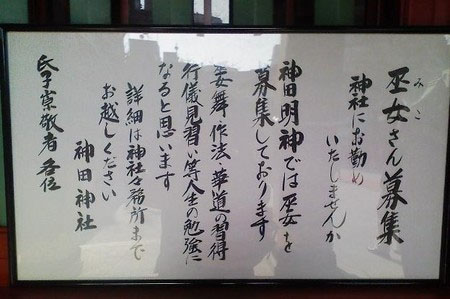 みこ
巫女さん募集
神社にお勤め
いたしませんか
神田明神では巫女を
募集しております
舞 作法 華道の習得
行儀見習い等人生の勉強に
なると思います
詳細は神社々務所まで
お越しください
神田神社
氏子崇敬者各位